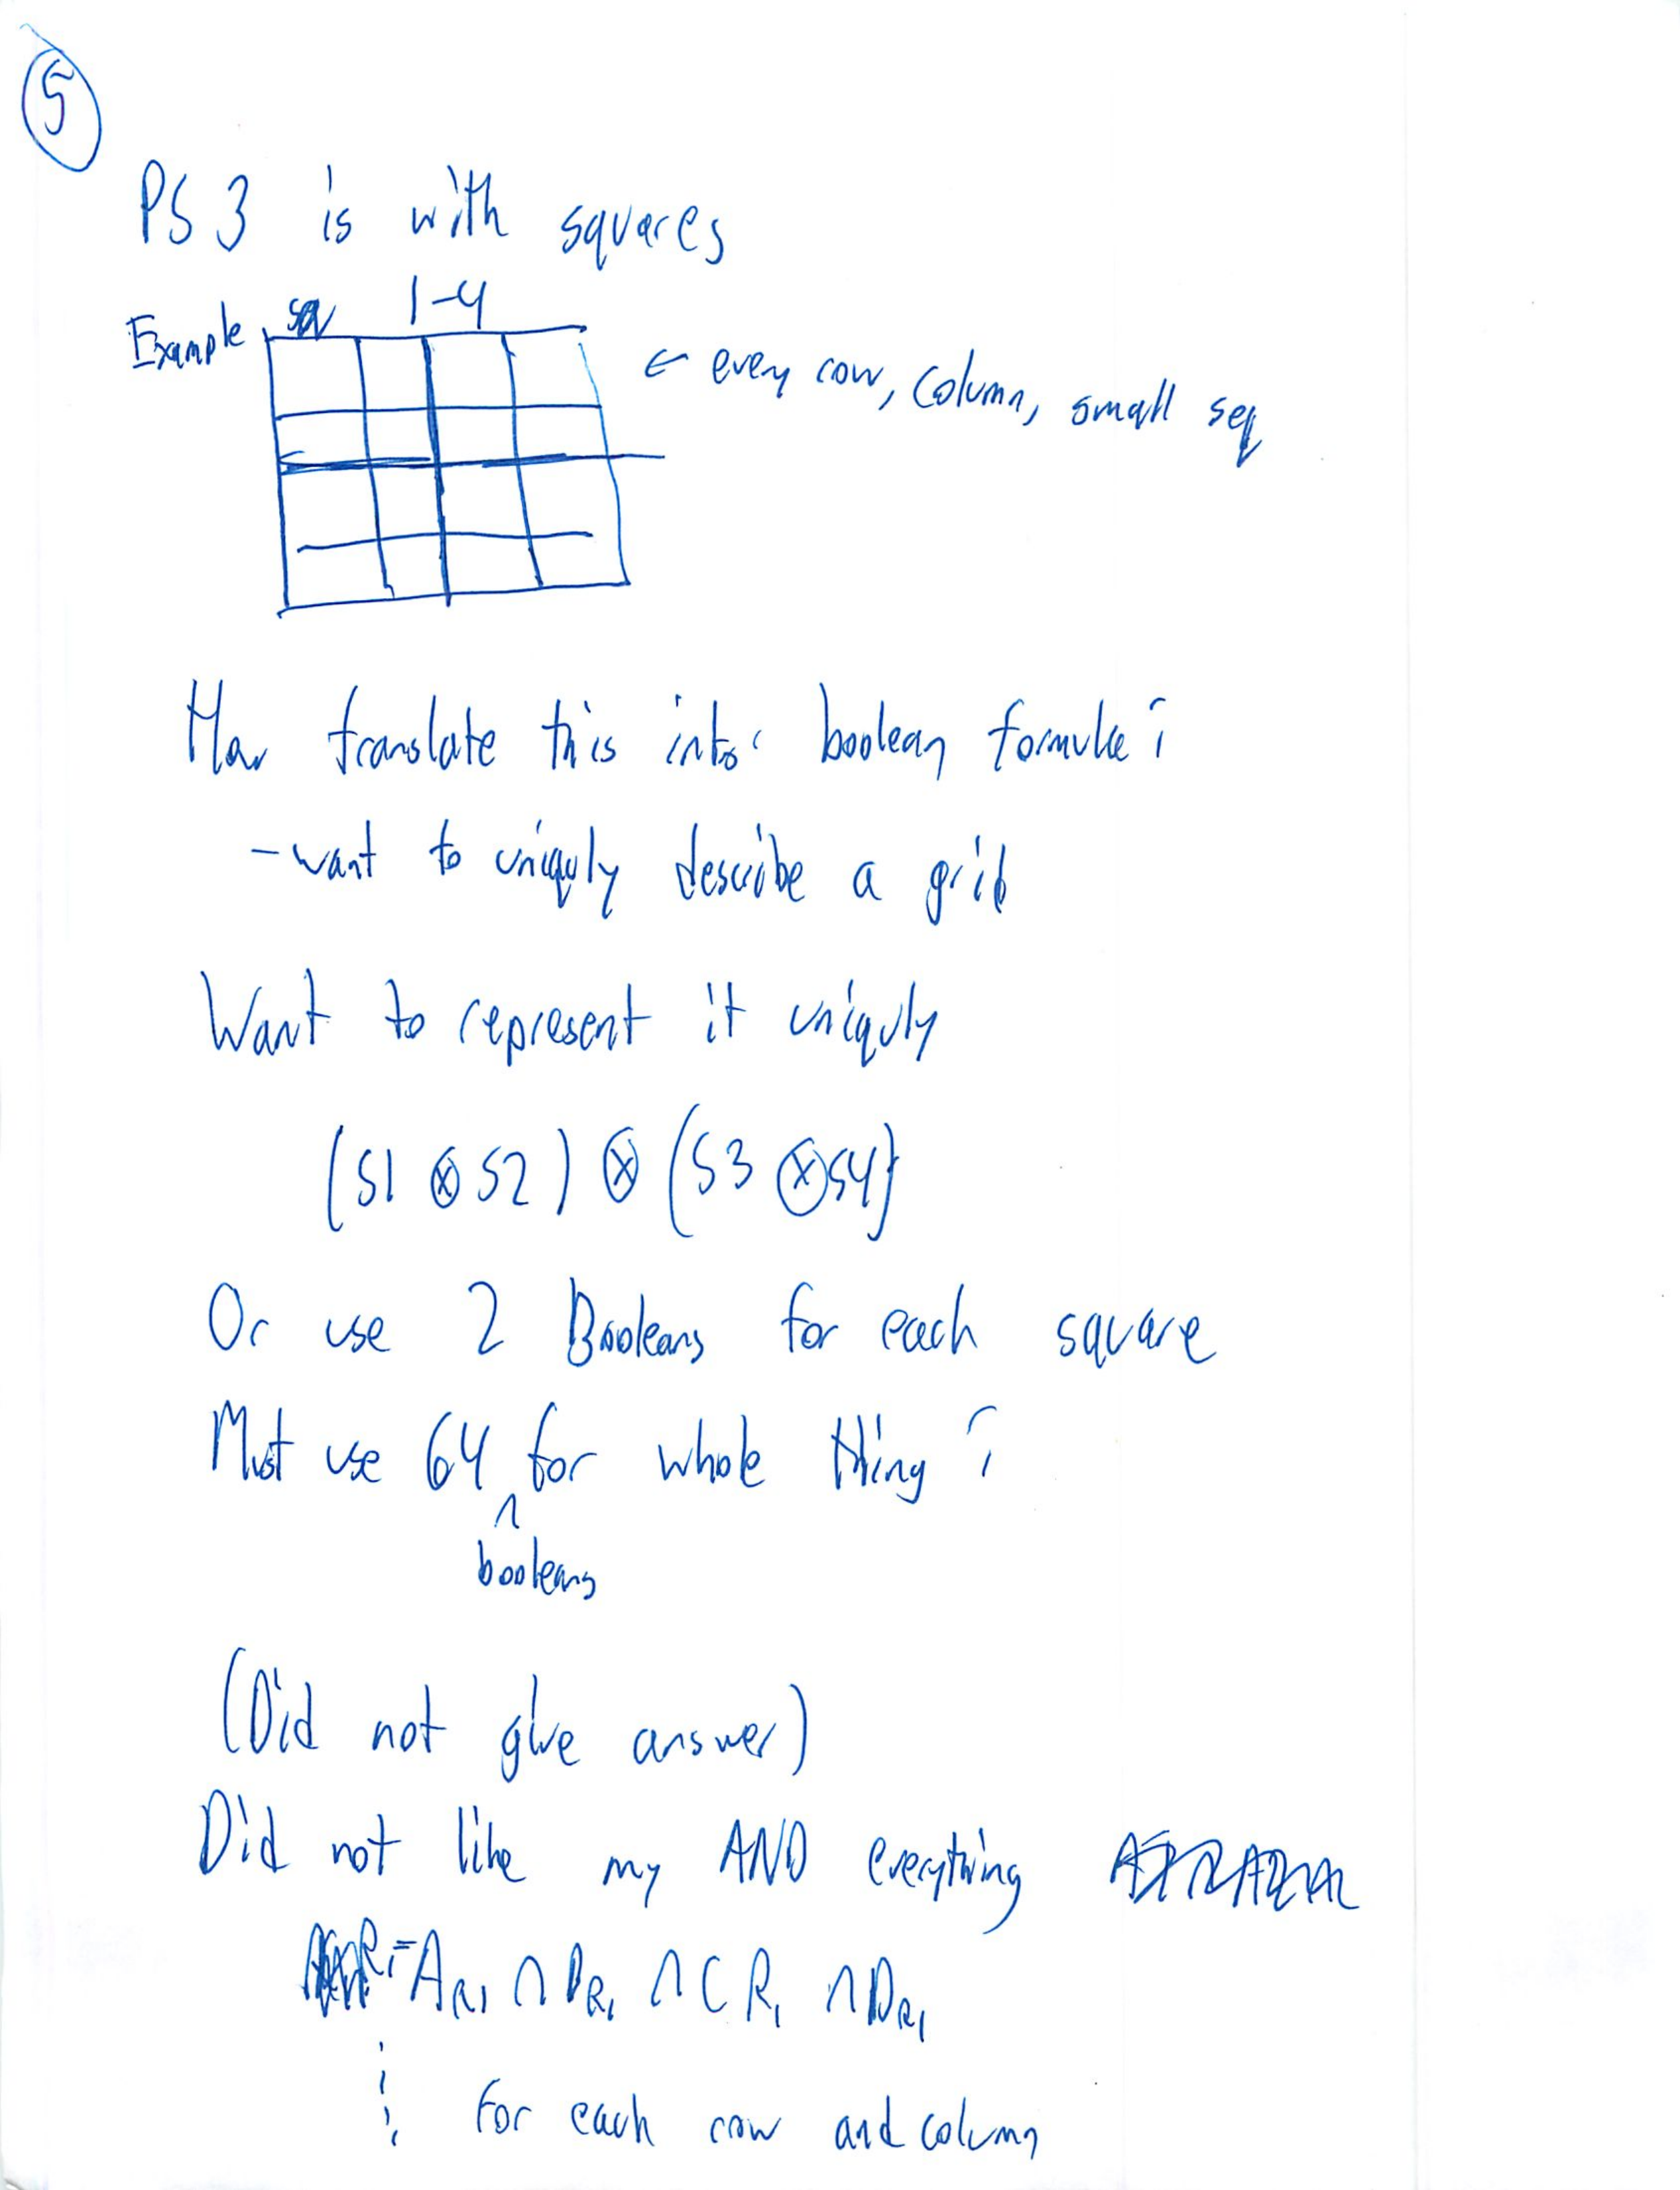 5
PS 3 is with squares
Example 1-4
← every row, column, small seq
How translate this into boolean formula?
- want to uniquly describe a grid
Want to represent it uniquly
(S1 ⊗ S2) ⊗ (S3 ⊗ S4)
Or use 2 Booleans for each square
Must use 64 for whole thing?
^
booleans
(Did not give answer)
Did not like my AND everything
R1 = A R1 ∩ B R1 ∩ C R1 ∩ D R1
⋮ for each row and column